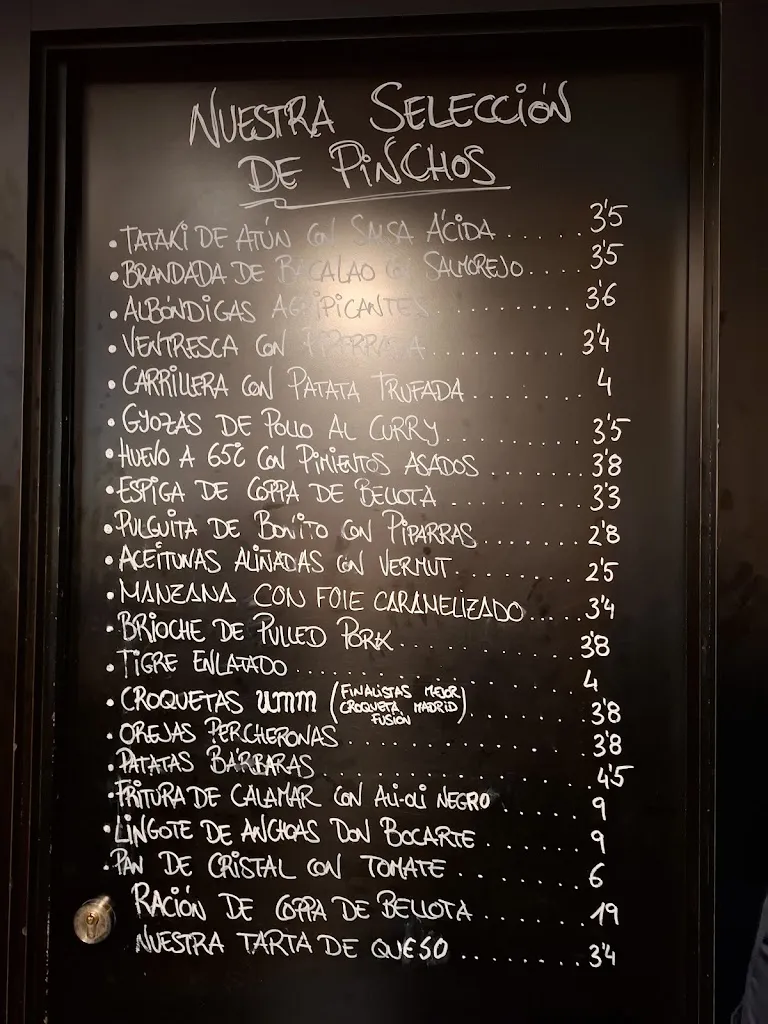 NUESTRA SELECCIÓN
DE PINCHOS
• TATAKI DE ATÚN CON SALSA ÁCIDA ...... 3'5
• BRANDADA DE BACALAO CON SALMOREJO .... 3'5
• ALBÓNDIGAS AGRIPICANTES .......... 3'6
• VENTRESCA CON PIPERRADA .......... 3'4
• CARRILLERA CON PATATA TRUFADA ........ 4
• GYOZAS DE POLLO AL CURRY .......... 3'5
• HUEVO A 65º CON PIMIENTOS ASADOS ....... 3'8
• ESPIGA DE COPPA DE BELLOTA ......... 3'3
• PULGUITA DE BONITO CON PIPARRAS ....... 2'8
• ACEITUNAS ALIÑADAS CON VERMUT ........ 2'5
• MANZANA CON FOIE CARAMELIZADO ..... 3'4
• BRIOCHE DE PULLED PORK ............ 3'8
• TIGRE ENLATADO ................ 4
• CROQUETAS umm (FINALISTAS MEJOR CROQUETA MADRID FUSIÓN) ......... 3'8
• OREJAS PERCHERONAS .............. 3'8
• PATATAS BÁRBARAS ............... 4'5
• FRITURA DE CALAMAR CON ALI-OLI NEGRO ...... 9
• LINGOTE DE ANCHOAS DON BOCARTE ....... 9
• PAN DE CRISTAL CON TOMATE ......... 6
RACIÓN DE COPPA DE BELLOTA ........ 19
NUESTRA TARTA DE QUESO .......... 3'4